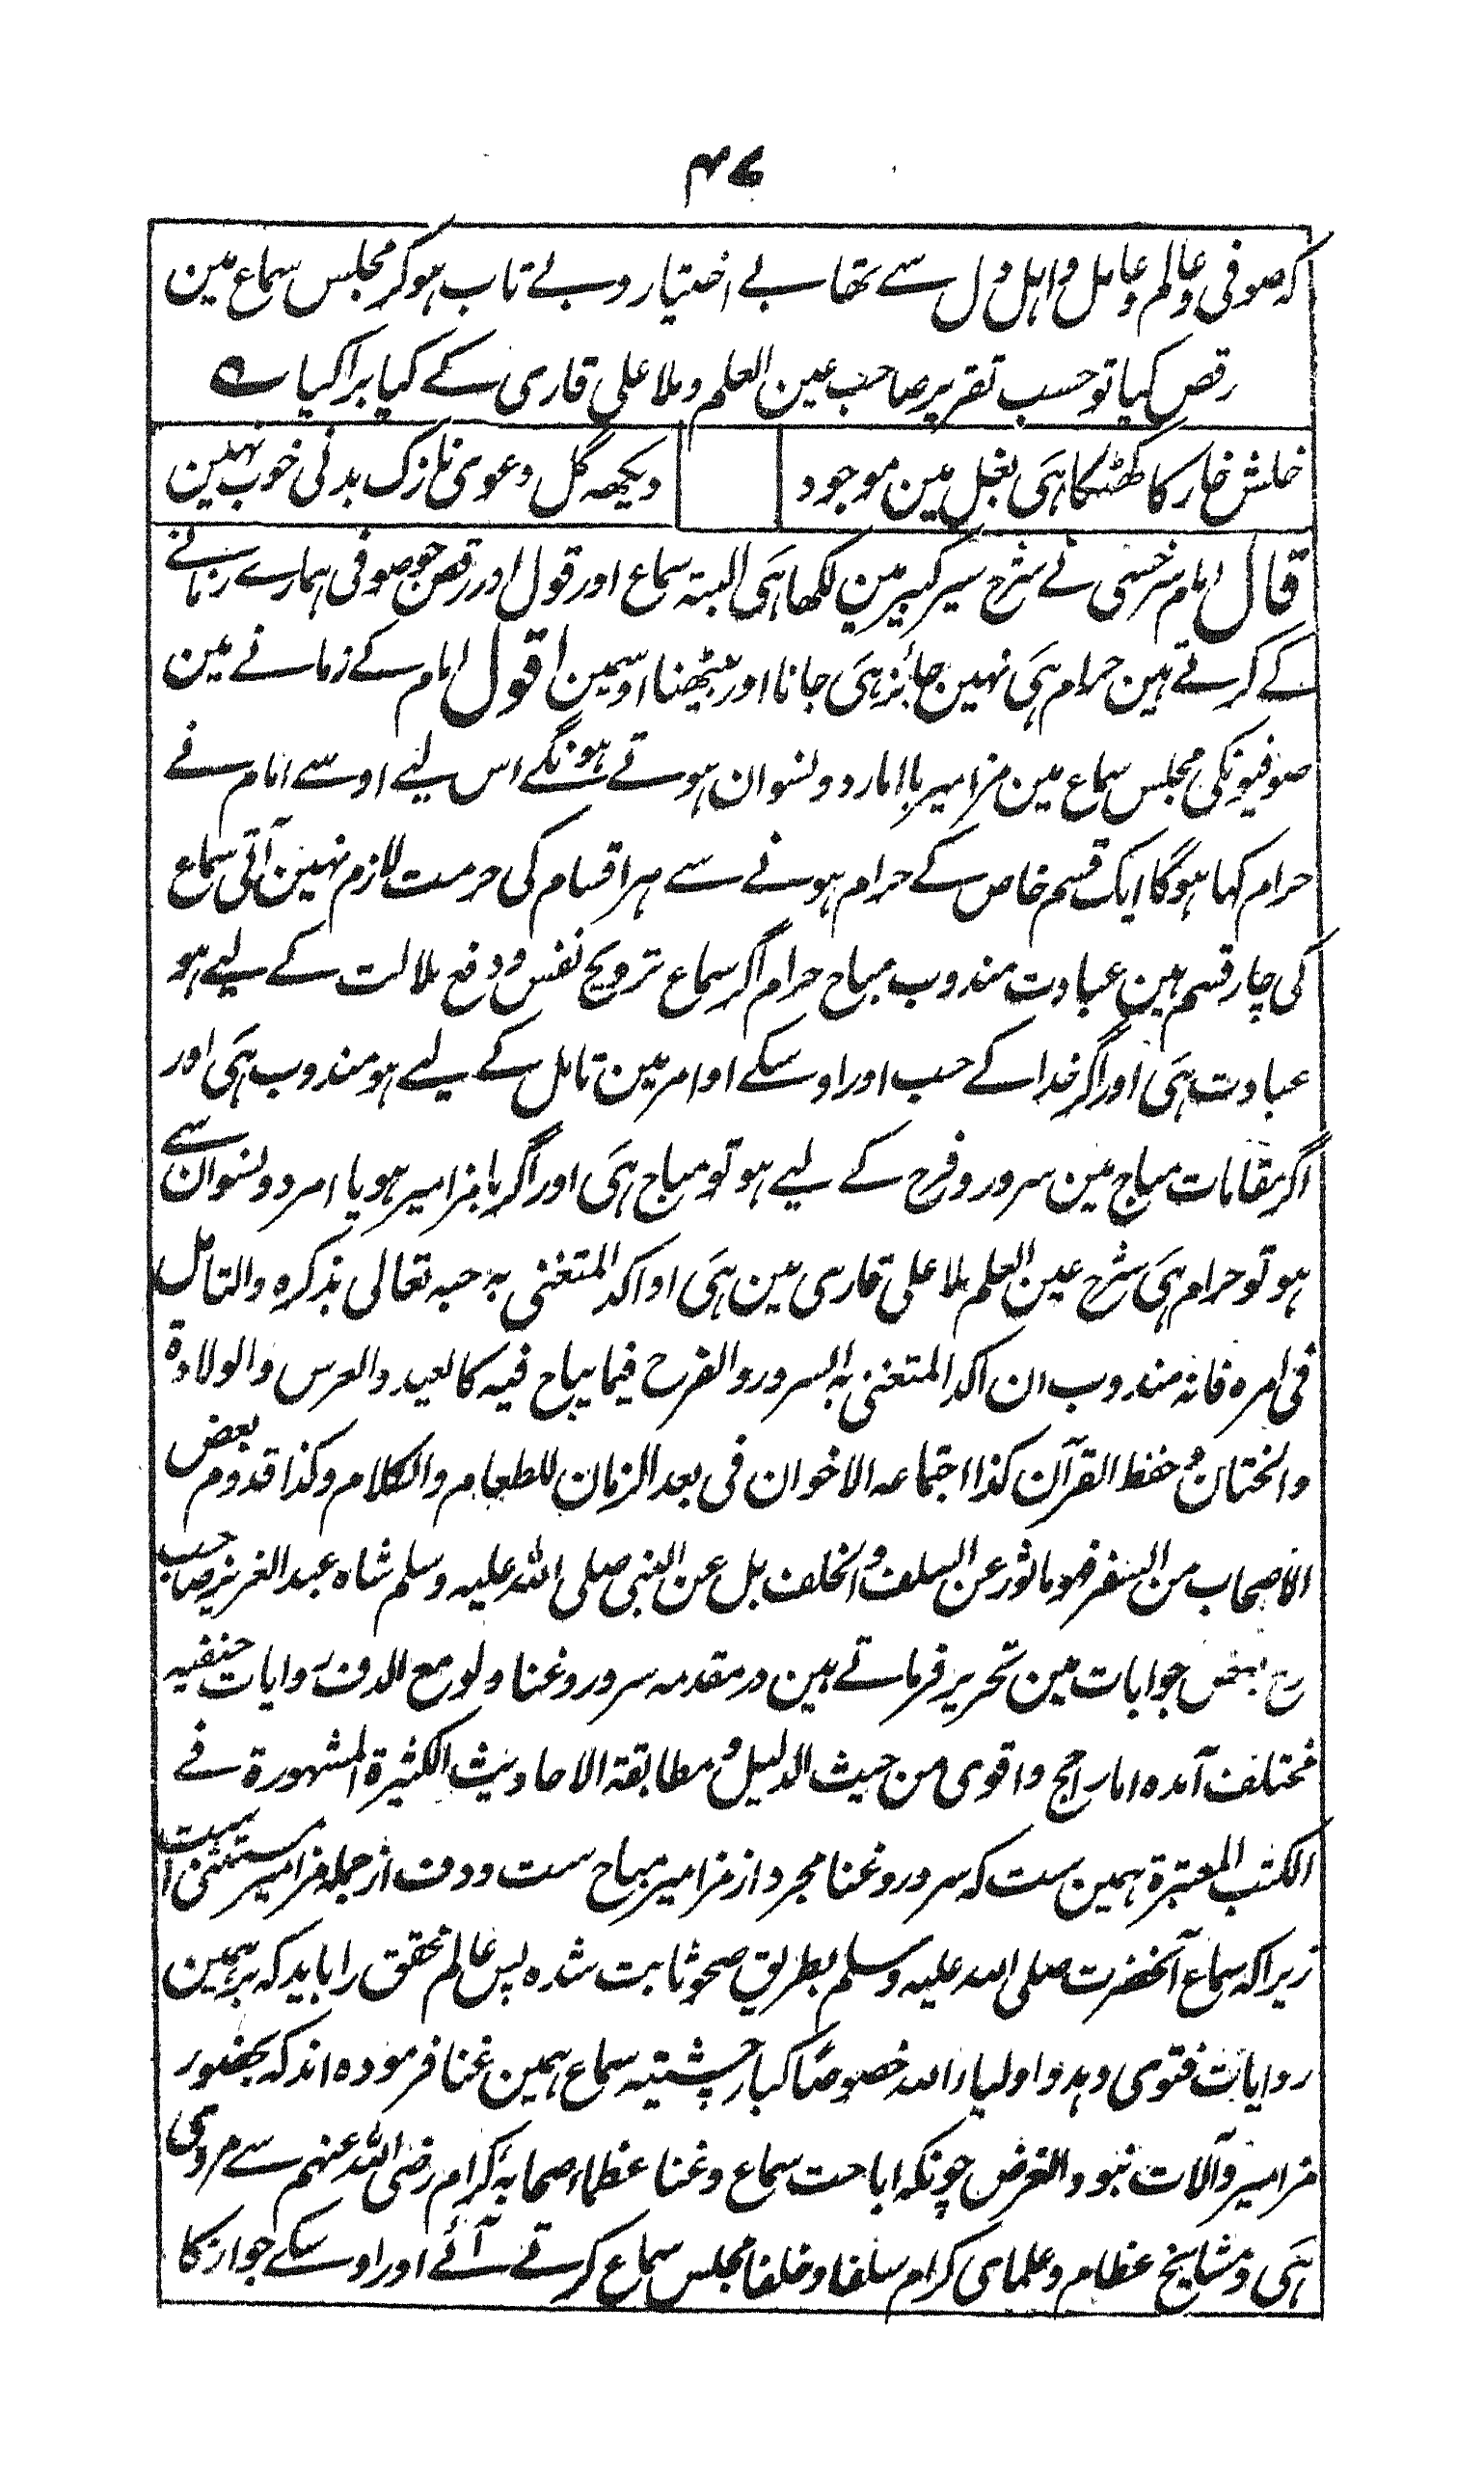 ۴۷
کہ صوفی و عالم و عامل و اہل دل سے تھا بے اختیار و بے تاب ہو کر مجلس سماع مین
رقص کیا تو حسب تقریر صاحب عین العلم و ملا علی قاری کے کیا برا کیا ے
خلش خار کا کھٹکا ہی بغل مین موجود دیکھہ گل دعوی نازک بدنی خوب نہین
قال امام سرخسی نے شرح سیر کبیر مین لکھا ہی البتہ سماع اور قول اور رقص جو صوفی ہمارے زمانے
کے کرتے ہین حرام ہی نہین جائز ہی جانا اور بیٹھنا اوسمین اقول امام کے زمانے مین
صوفیونکی مجلس سماع مین مزامیر یا امارد و نسوان ہوتے ہونگے اس لیے اوسے امام نے
حرام کہا ہوگا ایک قسم خاص کے حرام ہونے سے ہر اقسام کی حرمت لازم نہین آتی سماع
کی چار قسم ہین عبادت مندوب مباح حرام اگر سماع ترویح نفس و دفع ملالت کے لیے ہو
عبادت ہی اور اگر خدا کے حب اور اوسکے اوامر مین تامل کے لیے ہو مندوب ہی اور
اگر مقامات مباح مین سرور و فرح کے لیے ہو تو مباح ہی اور اگر با مزامیر ہو یا امرد و نسوان سے
ہو تو حرام ہی شرح عین العلم ملا علی قاری مین ہی او اکد المتغنی بہ حبہ تعالی بذکرہ والتامل
فی امرہ فانہ مندوب ان اکد المتغنی بہ السرور والفرح فیما یباح فیہ کالعید والعرس والولادۃ
والختان و حفظ القرآن کذا اجتماعہ الاخوان فی بعد الزمان للطعام والکلام وکذا قدوم بعض
الاصحاب من السفر فہو ماثور عن السلف والخلف بل عن النبی صلی اللہ علیہ وسلم شاہ عبد العزیز صاحب
رح بعض جوابات مین تحریر فرماتے ہین در مقدمہ سرور و غنا ولو مع الدف روایات حنفیہ
مختلف آمدہ اما راجح و اقوی من حیث الدلیل و مطابقۃ الاحادیث الکثیرۃ المشہورۃ فے
الکتب المعتبرۃ ہمین ست کہ سرور و غنا مجرد از مزامیر مباح ست و دف از جملہ مزامیر مستثنی است
زیرا کہ سماع آنحضرت صلی اللہ علیہ وسلم بطریق صحو ثابت شدہ پس عالم محقق را باید کہ بر ہمین
روایات فتوی دہد و اولیاء اللہ خصوصًا کبار چشتیہ سماع ہمین غنا فرمودہ اند کہ بحضور
مزامیر و آلات نبود والغرض چونکہ اباحت سماع و غنا عظماء صحابہ کرام رضی اللہ عنہم سے مروی
ہی و مشایخ عظام و علمای کرام سلفا و خلفا مجلس سماع کرتے آئے اور اوسکے جواز کا